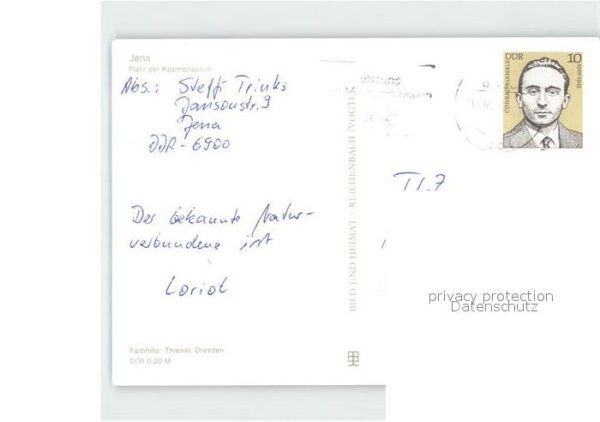 Jena
Platz der Kosmonauten
Abs.: Steffi Trinks
Jansonstr. 9
Jena
DDR-6900
DDR 10
CONRAD BLENKLE
1901-1943
BILD UND HEIMAT · REICHENBACH (VOGTL
TI.7
Der bekannte Natur-
verbundene ist
Loriot
privacy protection
Datenschutz
Farbfoto: Thienel, Dresden
DDR 0,20 M